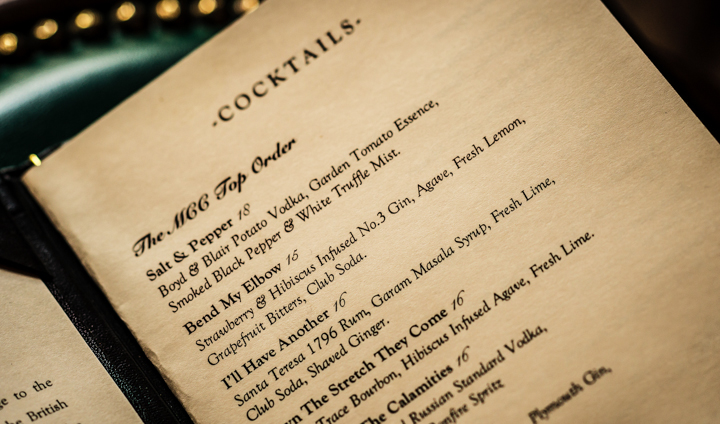 e to the
he British
·COCKTAILS·
The MCC Top Order
Salt & Pepper 18
Boyd & Blair Potato Vodka, Garden Tomato Essence,
Smoked Black Pepper & White Truffle Mist.
Bend My Elbow 15
Strawberry & Hibiscus Infused No.3 Gin, Agave, Fresh Lemon,
Grapefruit Bitters, Club Soda.
I'll Have Another 16
Santa Teresa 1796 Rum, Garam Masala Syrup, Fresh Lime,
Club Soda, Shaved Ginger.
wn The Stretch They Come 16
Trace Bourbon, Hibiscus Infused Agave, Fresh Lime.
The Calamities 16
d Russian Standard Vodka,
onfire Spritz
Plymouth Gin,